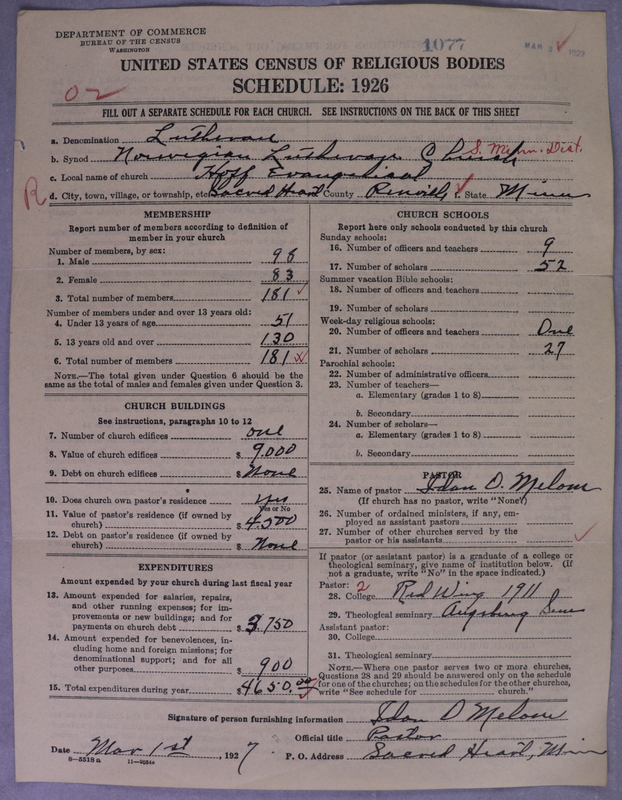 DEPARTMENT OF COMMERCE
BUREAU OF THE CENSUS
WASHINGTON
1077
MAR 1927
UNITED STATES CENSUS OF RELIGIOUS BODIES
SCHEDULE: 1926
02
FILL OUT A SEPARATE SCHEDULE FOR EACH CHURCH. SEE INSTRUCTIONS ON THE BACK OF THIS SHEET
a. Denomination Lutheran
b. Synod Norwegian Lutheran Church S. Minn. Dist.
c. Local name of church Hoff Evangelical
R d. City, town, village, or township, etc. Sacred Heart County Renville f. State Minn
MEMBERSHIP
Report number of members according to definition of
member in your church
Number of members, by sex:
1. Male 98
2. Female 83
3. Total number of members 181
Number of members under and over 13 years old:
4. Under 13 years of age 51
5. 13 years old and over 130
6. Total number of members 181
NOTE.—The total given under Question 6 should be the
same as the total of males and females given under Question 3.
CHURCH BUILDINGS
See instructions, paragraphs 10 to 12
7. Number of church edifices one
8. Value of church edifices $ 9,000
9. Debt on church edifices $ None
10. Does church own pastor's residence yes
Yes or No
11. Value of pastor's residence (if owned by
church) $ 4,500
12. Debt on pastor's residence (if owned by
church) $ None
EXPENDITURES
Amount expended by your church during last fiscal year
13. Amount expended for salaries, repairs,
and other running expenses; for im-
provements or new buildings; and for
payments on church debt $ 3,750
14. Amount expended for benevolences, in-
cluding home and foreign missions; for
denominational support; and for all
other purposes $ 900
15. Total expenditures during year $ 4650.00
CHURCH SCHOOLS
Report here only schools conducted by this church
Sunday schools:
16. Number of officers and teachers 9
17. Number of scholars 52
Summer vacation Bible schools:
18. Number of officers and teachers
19. Number of scholars
Week-day religious schools:
20. Number of officers and teachers One
21. Number of scholars 27
Parochial schools:
22. Number of administrative officers
23. Number of teachers—
a. Elementary (grades 1 to 8)
b. Secondary
24. Number of scholars—
a. Elementary (grades 1 to 8)
b. Secondary
PASTOR
25. Name of pastor O. Melom
(If church has no pastor, write "None")
26. Number of ordained ministers, if any, em-
ployed as assistant pastors
27. Number of other churches served by the
pastor or his assistants
If pastor (or assistant pastor) is a graduate of a college or
theological seminary, give name of institution below. (If
not a graduate, write "No" in the space indicated.)
Pastor: 2
28. College Red Wing 1911
29. Theological seminary Augsburg Sem
Assistant pastor:
30. College
31. Theological seminary
NOTE.—Where one pastor serves two or more churches,
Questions 28 and 29 should be answered only on the schedule
for one of the churches; on the schedules for the other churches,
write "See schedule for church."
Signature of person furnishing information O Melom
Official title Pastor
Date Mar 1st, 1927 P. O. Address Sacred Heart, Minn
8—5518a